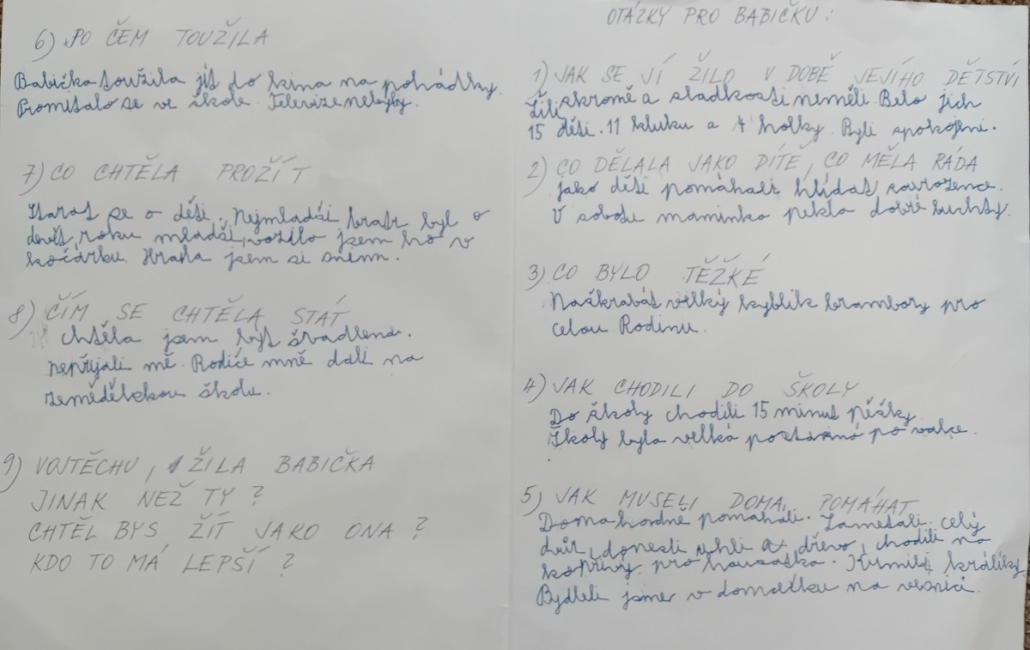 OTÁZKY PRO BABIČKU:
1) JAK SE JÍ ŽILO V DOBĚ JEJÍHO DĚTSTVÍ
Žili skromě a sladkosti neměli. Belo jich
15 děti. 11 kluku a 4 holky. Byli spokojeni.
2) CO DĚLALA JAKO DÍTĚ, CO MĚLA RÁDA
jako děti pomáhali hlídat sourozence.
V sobotu maminka pekla dobré buchty.
3) CO BYLO TĚŽKÉ
Naškrabat velký kyblik brambory pro
celou Rodinu.
4) JAK CHODILI DO ŠKOLY
Do školy chodili 15 minut pěšky.
Školy byla velká postavná po valce.
5) JAK MUSELI DOMA POMÁHAT
Doma hodně pomáhali. Zametali celý
dvůr, donesli uhli a dřevo, chodili na
kopřivy pro housátka. Krmili králiky
Bydleli jsme v domečku na vesnici.
6) PO ČEM TOUŽILA
Babička toužila jít do kina na pohádky.
Promitalo se ve škole. Televize nebyly.
7) CO CHTĚLA PROŽÍT
Starat se o děti. Nejmladši bratr byl o
devět roku mladši, vozila jsem ho v
kočárku. Hrala jsem si snim.
8) ČÍM SE CHTĚLA STÁT
chtěla jsem být švadlena.
nepřijali mě. Rodiče mně dali na
zemědělskou školu.
9) VOJTĚCHU, ŽILA BABIČKA
JINAK NEŽ TY?
CHTĚL BYS ŽÍT JAKO ONA?
KDO TO MÁ LEPŠÍ?